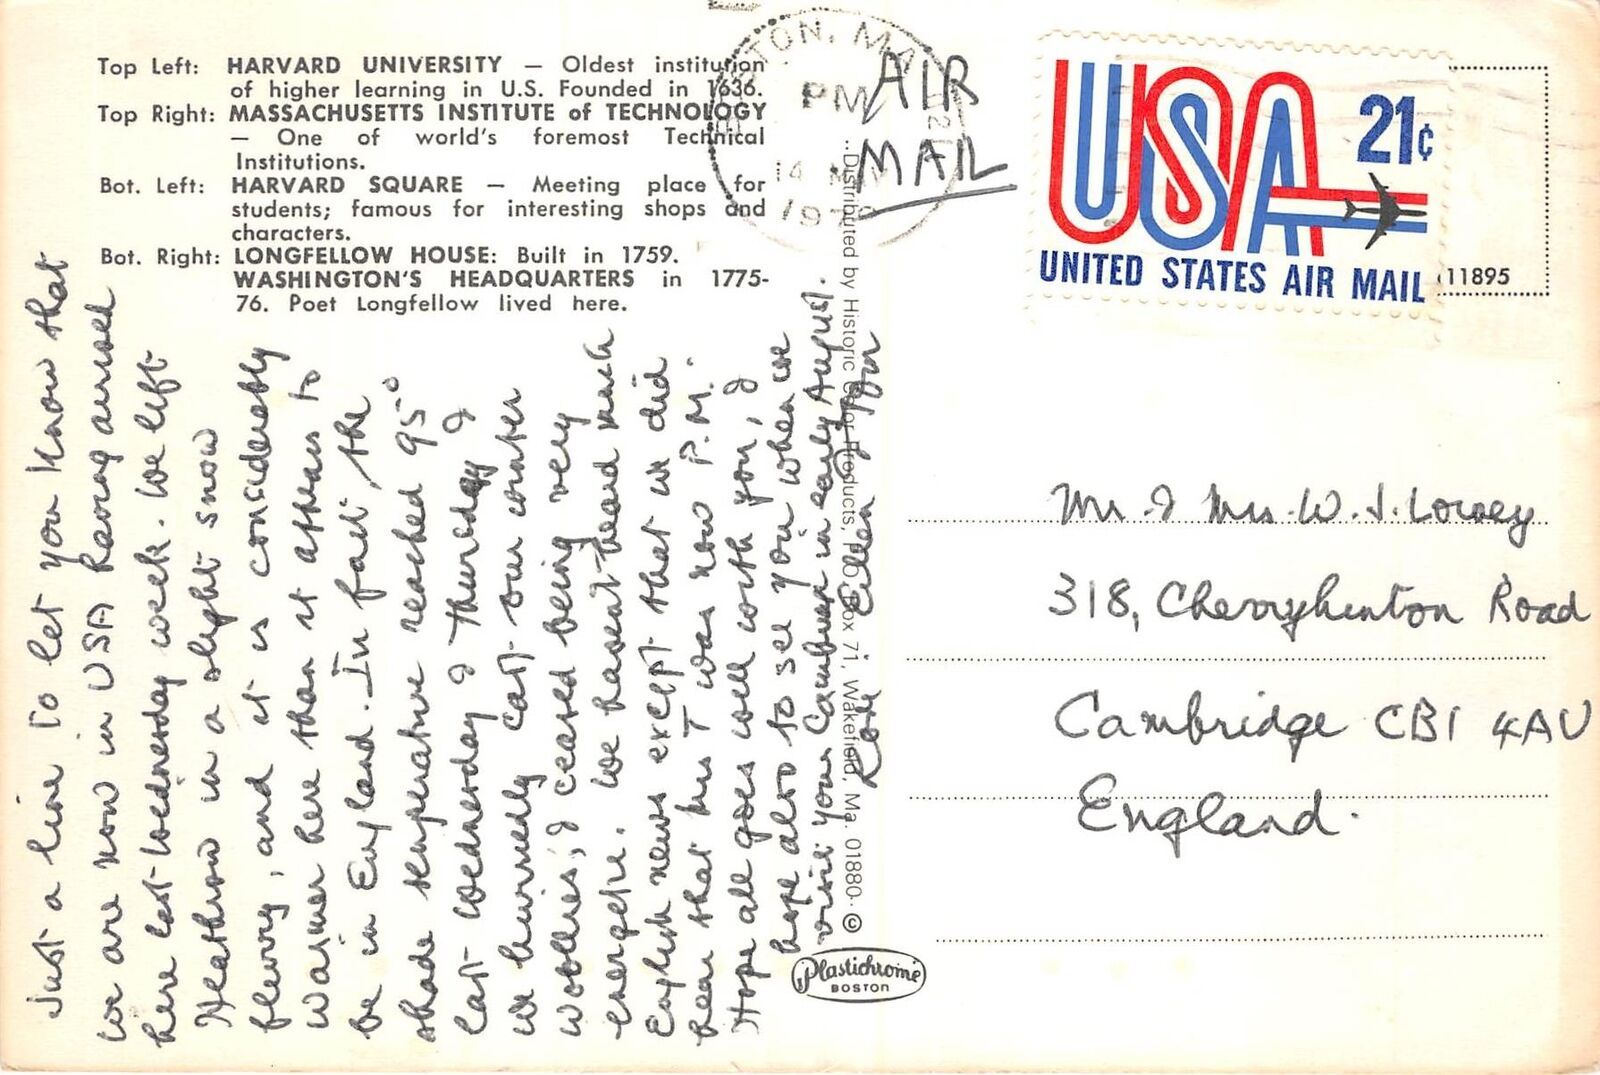 Top Left: HARVARD UNIVERSITY — Oldest institution
of higher learning in U.S. Founded in 1636.
Top Right: MASSACHUSETTS INSTITUTE of TECHNOLOGY
— One of world's foremost Technical
Institutions.
Bot. Left: HARVARD SQUARE — Meeting place for
students; famous for interesting shops and
characters.
Bot. Right: LONGFELLOW HOUSE: Built in 1759.
WASHINGTON'S HEADQUARTERS in 1775-
76. Poet Longfellow lived here.
TON, MA
PM
14
197
AIR
MAIL
USA 21¢
UNITED STATES AIR MAIL
11895
Just a line to let you know that
we are now in USA having arrived
here last Wednesday week. We left
Heathrow in a slight snow
flurry, and it is considerably
warmer here than it appears to
be in England. In fact, the
shade temperature reached 95°
last Wednesday & Thursday &
we hurriedly cast our winter
woollies, & ceased being very
energetic. We havent heard much
English news except that we did
hear that Mrs T was now P.M.
Hope all goes well with you, &
hope also to see you when we
visit your Cambridge in early August.
Eileen
..Distributed by Historic Color Products, PO Box 71, Wakefield, Ma. 01880. ©
Plastichrome
BOSTON
Mr & Mrs. W. J. Lowey
318, Cherryhinton Road
Cambridge CB1 4AU
England.